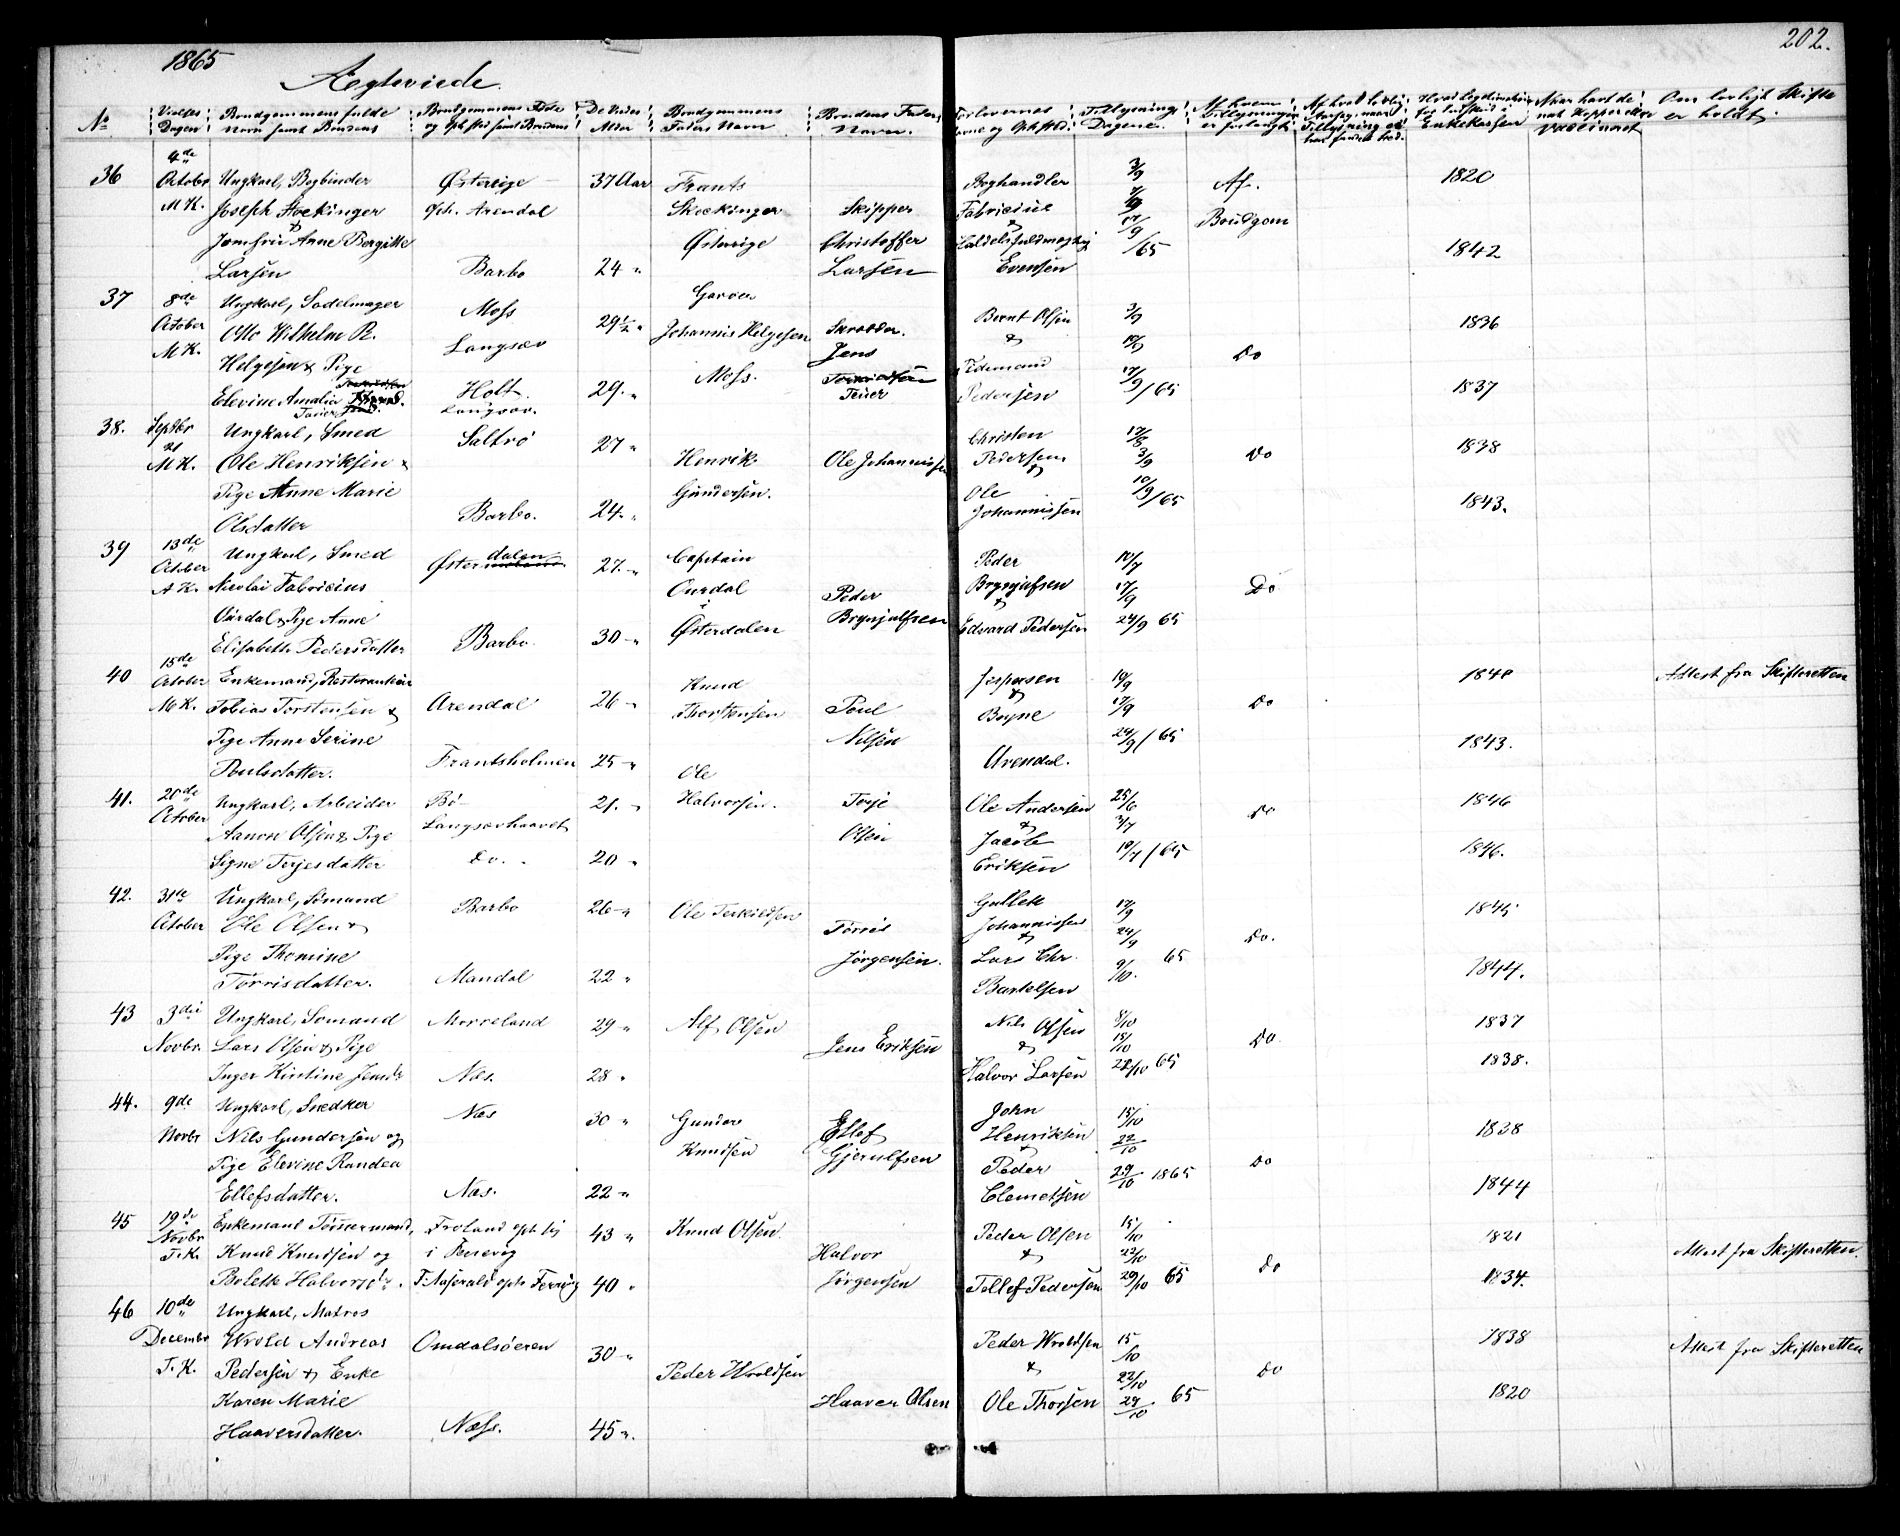 1865
Ægteviede.
202.
No | Vielses Dagen | Brudgommens fulde Navn samt Brudens | Brudgommens Føde og Oph.sted samt Brudens | De Viedes Alder | Brudgommens Faders Navn | Brudens Faders Navn. | Forlovernes Navne og Oph.sted. | Tillysnings Dagene. | Af hvem Tillysningen er forlangt | Naar havt de nat. Kopper eller vaccineret | Om lovligt Skifte er holdt.
36 | 4de October M.K. | Ungkarl, Bogbinder Joseph Stockinger & Jomfru Anne Bergitte Larsen | Østerige Oph. Arendal Barbo | 37 Aar 24 " | Frants Stockinger Østerige | Skipper Christoffer Larsen | Boghandler Fabricius & Handelsfuldmægtig Evensen | 3/9 17/9 /65 | Af Brudgom | 1820 1842
37 | 8de October M.K. | Ungkarl, Sadelmager Otto Wilhelm R. Helgesen & Pige Elevine Amalia | Moss Langsæv Holt Langsæv. | 29½ " 29. " | Garver Johannis Helgesen Moss. | Skrædder. Jens | Bernt Olsen & Pedersen | 3/9 10/9 17/9 /65 | Do | 1836 1837
38. | Septbr 21 M.K. | Ungkarl, Smed Ole Henriksen & Pige Anne Marie Olsdatter | Saltrø Barbo. | 27 " 24. " | Henrik Gundersen. | Ole Johannissen | Christen Pedersen & Ole Johannissen | 3/9 10/9 /65 | Do | 1838 1843.
39 | 13de October A.K. | Ungkarl, Smed Nicolai Fabricius Ourdal & Pige Anne Elisabeth Pedersdatter | Østerdalen Barbo. | 27. " 30 " | Capitain Ourdal Østerdalen | Peder Brynjulfsen | Peder Brynjulfsen & Edvard Pedersen | 17/9 24/9 65 | Do
40 | 15de October M.K. | Enkemand, Restauratør Tobias Torstensen & Pige Anne Serine Poulsdatter. | Arendal Frantsholmen | 26 " 25 " | Knud Thorstensen | Poul Nilsen | Jespersen & Boyne Arendal. | 17/9 24/9 / 65 | Do | 1840 1843. | Attest fra Skifteretten
41. | 20de October | Ungkarl, Arbeider Aanon Olsen & Pige Signe Terjesdatter | Bø Langsævhaavet Do. | 21. " 20 " | Ole Halvorsen. | Terje Olsen | Ole Andersen & Jacob Eriksen | 25/6 3/7 10/7 / 65 | Do | 1846 1846.
42. | 31te October | Ungkarl, Sømand Ole Olsen & Pige Thomine Tørrisdatter. | Barbo Mandal | 26 " 22 " | Ole Terkieldsen | Tørris Jørgensen. | Gullek Johannissen & Lars Chr. Bartelsen | 17/9 24/9 9/10. 65 | Do. | 1845 1844.
43 | 3die Novbr. | Ungkarl, Sømand Lars Olsen & Pige Inger Kirstine Jensdr | Morreland Næs. | 29 " 28 " | Alf Olsen | Jens Eriksen | Nils Olsen & Halvor Larsen | 8/10 15/10 22/10 65 | Do | 1837 1838.
44. | 9de Novbr | Ungkarl, Snedker Nils Gundersen og Pige Elevine Randea Ellefsdatter. | Næs Næs. | 30 " 22 " | Gunder Knudsen | Ellef Gjerulfsen | John Henriksen & Peder Clemetsen | 15/10 22/10 29/10 1865 | Do | 1838 1844
45 | 19de Novbr T.K. | Enkemand Tømmermand, Knud Knudsen og Bolette Halvorsdr. | Froland oph. sig i Færevig | 43 " 40 " | Knud Olsen | Halvor Jørgensen | Peder Olsen & Tellef Pedersen | 15/10 22/10 29/10 65 | Do | 1821 1834. | Attest fra Skifteretten
46 | 10de Decembr T.K. | Ungkarl, Matros Wrold Andreas Pedersen & Enke Karen Marie Haaversdatter. | Omdalsøeren Næss. | 30 " 45 " | Peder Wroldsen | Haaver Olsen | Peder Wroldsen & Ole Thorsen | 15/10 22/10 29/10 65 | Do | 1838 1820 | Attest fra Skifteretten